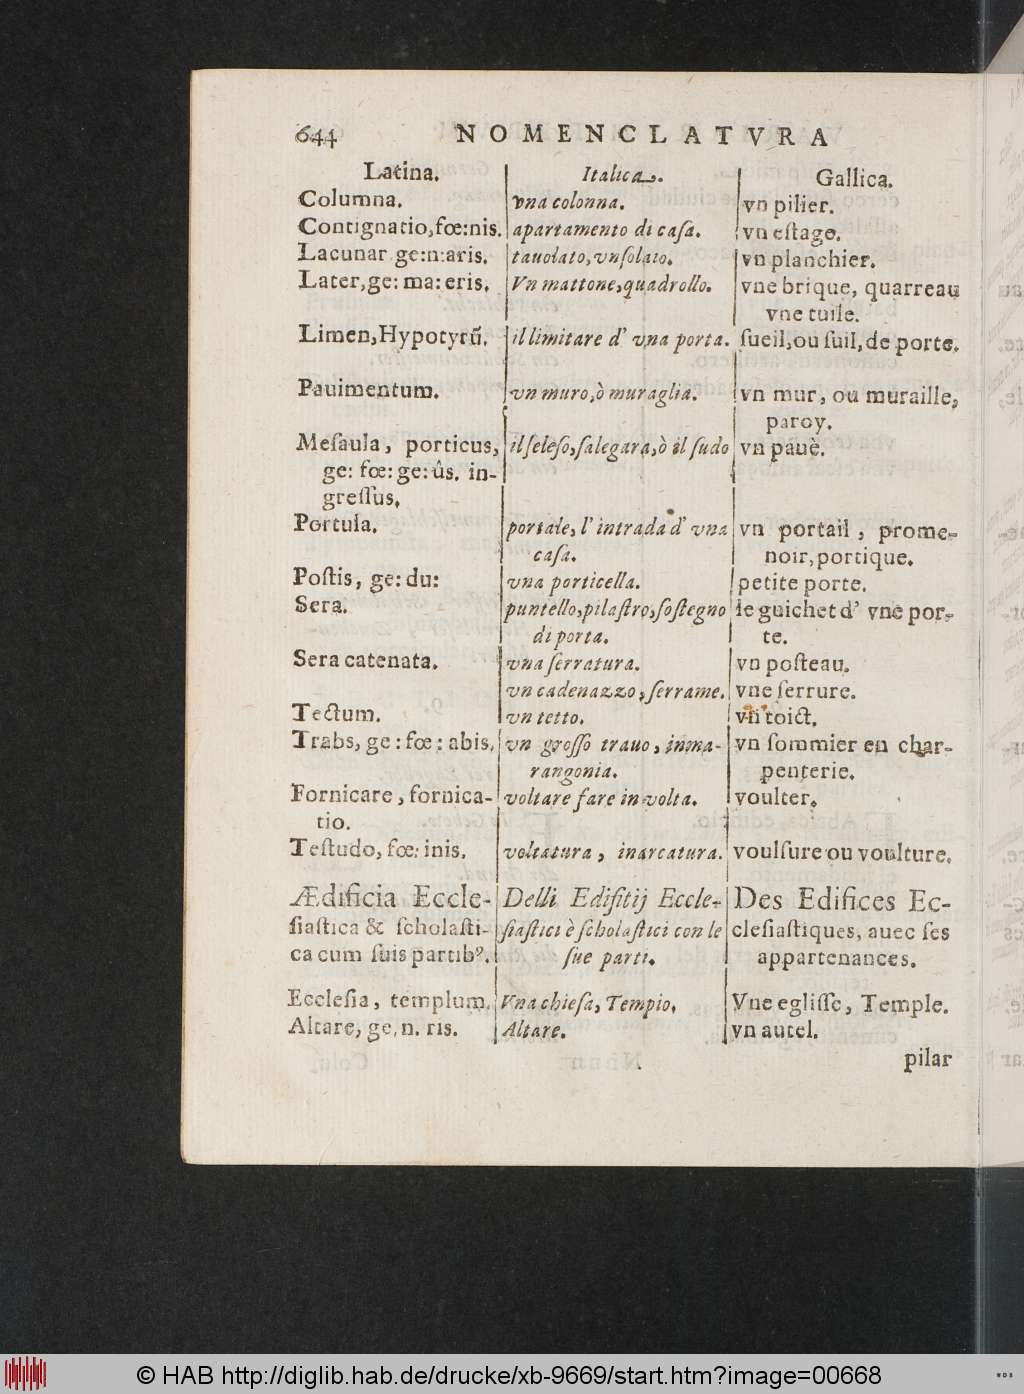 644 NOMENCLATVRA
Latina. Italica. Gallica.
Columna. vna colonna. vn pilier.
Contignatio, fœ:nis. apartamento di caſa. vn eſtage.
Lacunar ge:n:aris. tauolato, vnſolaio. vn planchier.
Later, ge: ma: eris. Vn mattone, quadrollo. vne brique, quarreau
vne tuile.
Limen, Hypotyrũ. il limitare d' vna porta. ſueil, ou ſuil, de porte.
Pauimentum. vn muro, ò muraglia. vn mur, ou muraille,
paroy.
Meſaula, porticus, il ſeleſo, ſalegara, ò il ſudo vn pauè.
ge: fœ: ge: ûs. in-
greſſus.
Portula. portale, l' intrada d' vna vn portail, prome-
caſa. noir, portique.
Poſtis, ge: du: vna porticella. petite porte.
Sera. puntello, pilaſtro, ſoſtegno le guichet d' vne por-
di porta. te.
Sera catenata. vna ſerratura. vn poſteau.
vn cadenazzo, ſerrame. vne ſerrure.
Tectum. vn tetto. vn toict.
Trabs, ge: fœ: abis. vn groſſo trauo, inma- vn ſommier en char-
rangonia. penterie.
Fornicare, fornica- voltare fare in volta. voulter.
tio.
Teſtudo, fœ: inis. voltatura, inarcatura. voulſure ou voulture.
Ædificia Eccle- Delli Edifitij Eccle- Des Edifices Ec-
ſiaſtica & ſcholaſti- ſiaſtici è ſcholaſtici con le cleſiaſtiques, auec ſes
ca cum ſuis partibꝰ. ſue parti. appartenances.
Eccleſia, templum. Vna chieſa, Tempio. Vne egliſſe, Temple.
Altare, ge, n. ris. Altare. vn autel.
pilar
© HAB http://diglib.hab.de/drucke/xb-9669/start.htm?image=00668